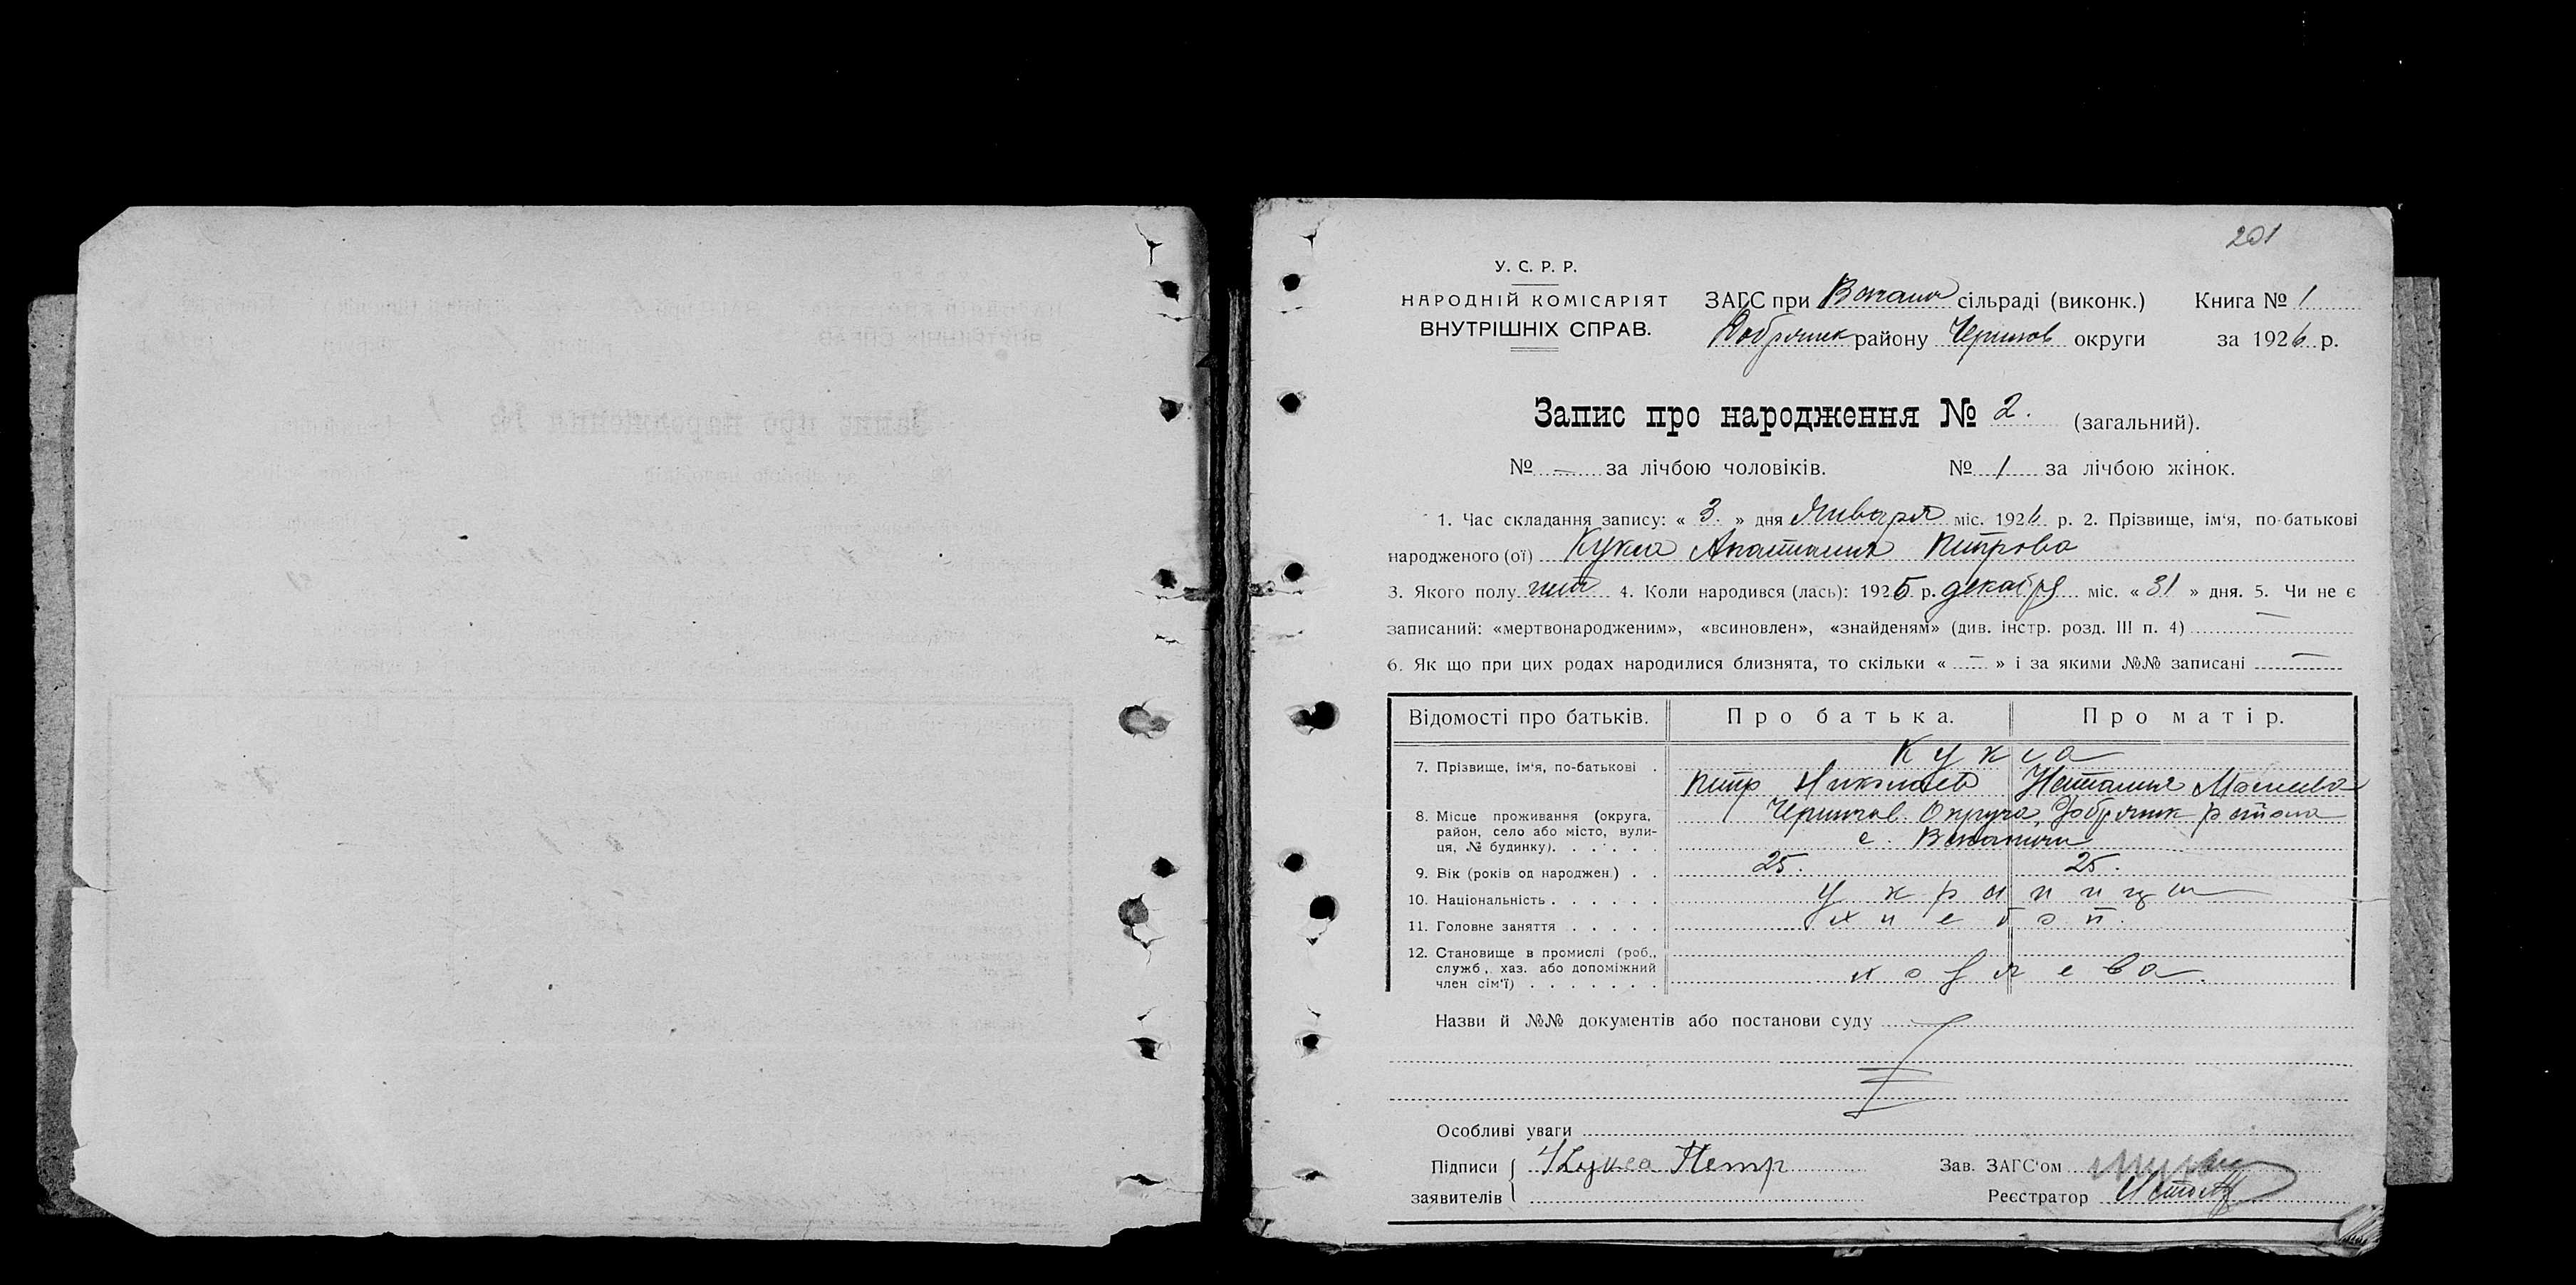 201
У. С. Р. Р.
НАРОДНІЙ КОМІСАРІЯТ
ВНУТРІШНІХ СПРАВ.
ЗАГС при сільраді (виконк.) Книга № 1
Добряник району Чернигов округи за 1926 р.
Запис про народження № 2. (загальний).
№ — за лічбою чоловіків. № 1 за лічбою жінок.
1. Час складання запису: « 3. » дня Января міс. 1926 р. 2. Прізвище, ім'я, по-батькові
народженого (ої) Кукса Анастасия Петрова
3. Якого полу жен 4. Коли народився (лась): 1925 р. декабря міс. « 31 » дня. 5. Чи не є
записаний: «мертвонародженим», «всиновлен», «знайденям» (див. інстр. розд. III п. 4) —
6. Як що при цих родах народилися близнята, то скільки « — » і за якими №№ записані —
Відомості про батьків. Про батька. Про матір.
Кукса
7. Прізвище, ім'я, по-батькові .
Петр Николаев Наталия
8. Місце проживання (округа, район, село або місто, вулиця, № будинку). Чернигов. Округа, Добряник района
с.
9. Вік (років од народжен.) . . 25. 25.
10. Національність . . . . . . украинцы
11. Головне заняття . . . . . хлебоп.
12. Становище в промислі (роб.,
служб., хаз. або допоміжний
член сім'ї) . . . . . . . хозяева.
Назви й №№ документів або постанови суду
Особливі уваги
Підписи Кукса Петр Зав. ЗАГС'ом
заявителів Реєстратор